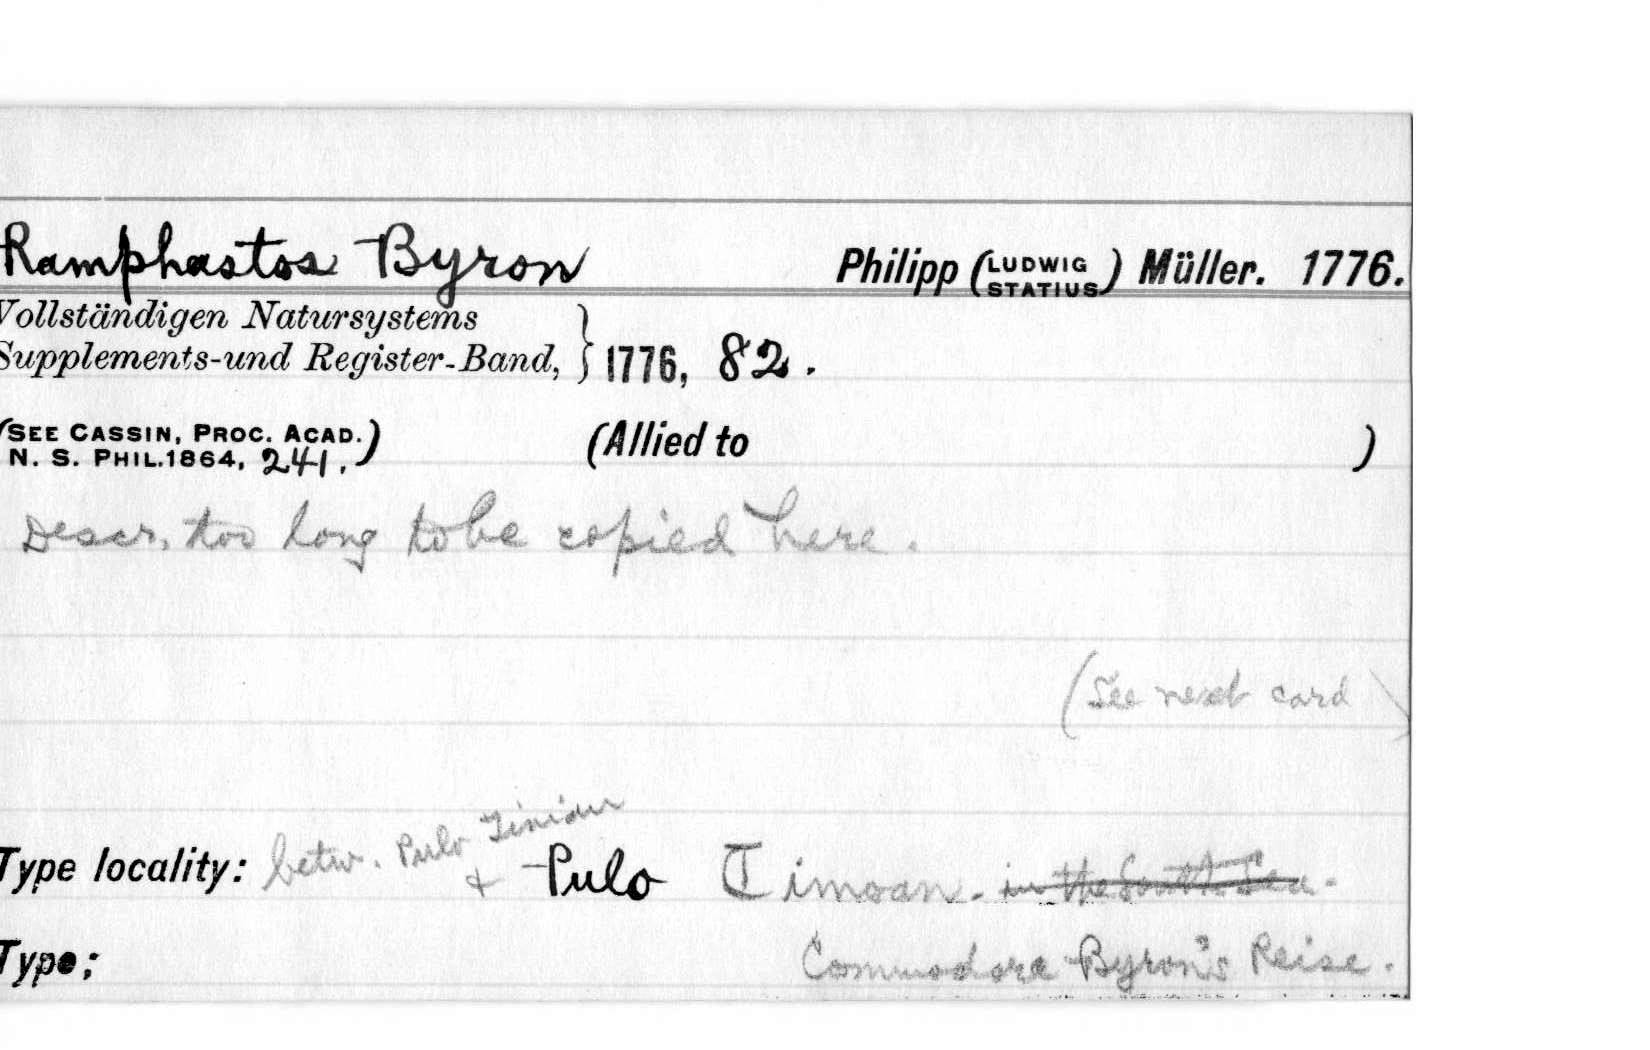 Ramphastos Byron Philipp (LUDWIG STATIUS) Müller. 1776.
Vollständigen Natursystems
Supplements-und Register-Band, } 1776, 82.
(SEE CASSIN, PROC. ACAD.
N. S. PHIL. 1864, 241.) (Allied to )
Descr. too long to be copied here.
(See next card)
Type locality: betw. Pulo Tinian & Pulo Timoan. in the South Sea.
Type; Commodore Byron's Reise.